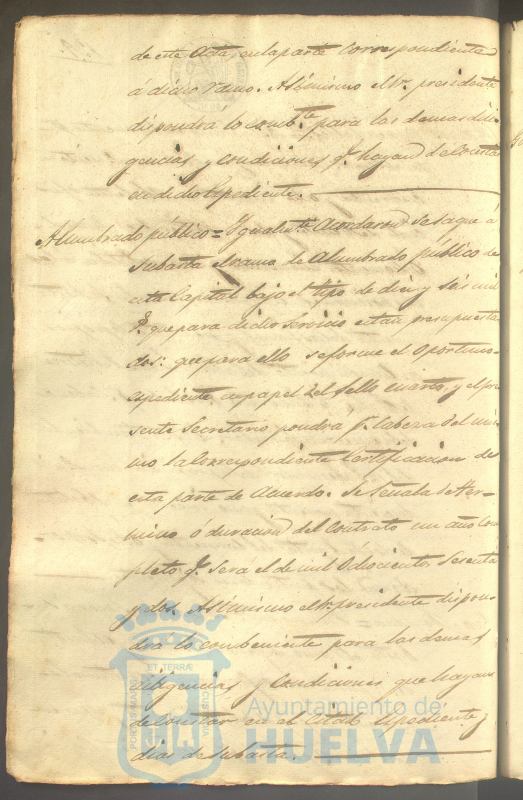 de este Acta, en la parte correspondiente
á dicho ramo. Asimismo el Sr. presidente
dispondrá lo conbte. para las demas dili-
gencias y condiciones q. hayan de constar
en dicho Espediente.
Alumbrado público = Ygualmte. Acordaron se saque á
Subasta el ramo de Alumbrado público de
esta Capital bajo el tipo de diez y seis mil
q. para dicho servicio estan presupuesta-
dos: que para ello se forme el oportuno
espediente en papel del sello cuarto, y el pre-
sente Secretario pondrá p. cabeza del mis-
mo la correspondiente Certificacion de
esta parte de Acuerdo. Se señala de ter-
mino ó duracion del contrato un año com-
pleto q. sera el de mil ochocientos sesenta
y dos. Asimismo el Sr. presidente dispon-
drá lo conbeniente para las demas
diligencias y condiciones que hayan
de constar en el citado Espediente y
dias de subasta.
ET TERRAE
Ayuntamiento de
HUELVA